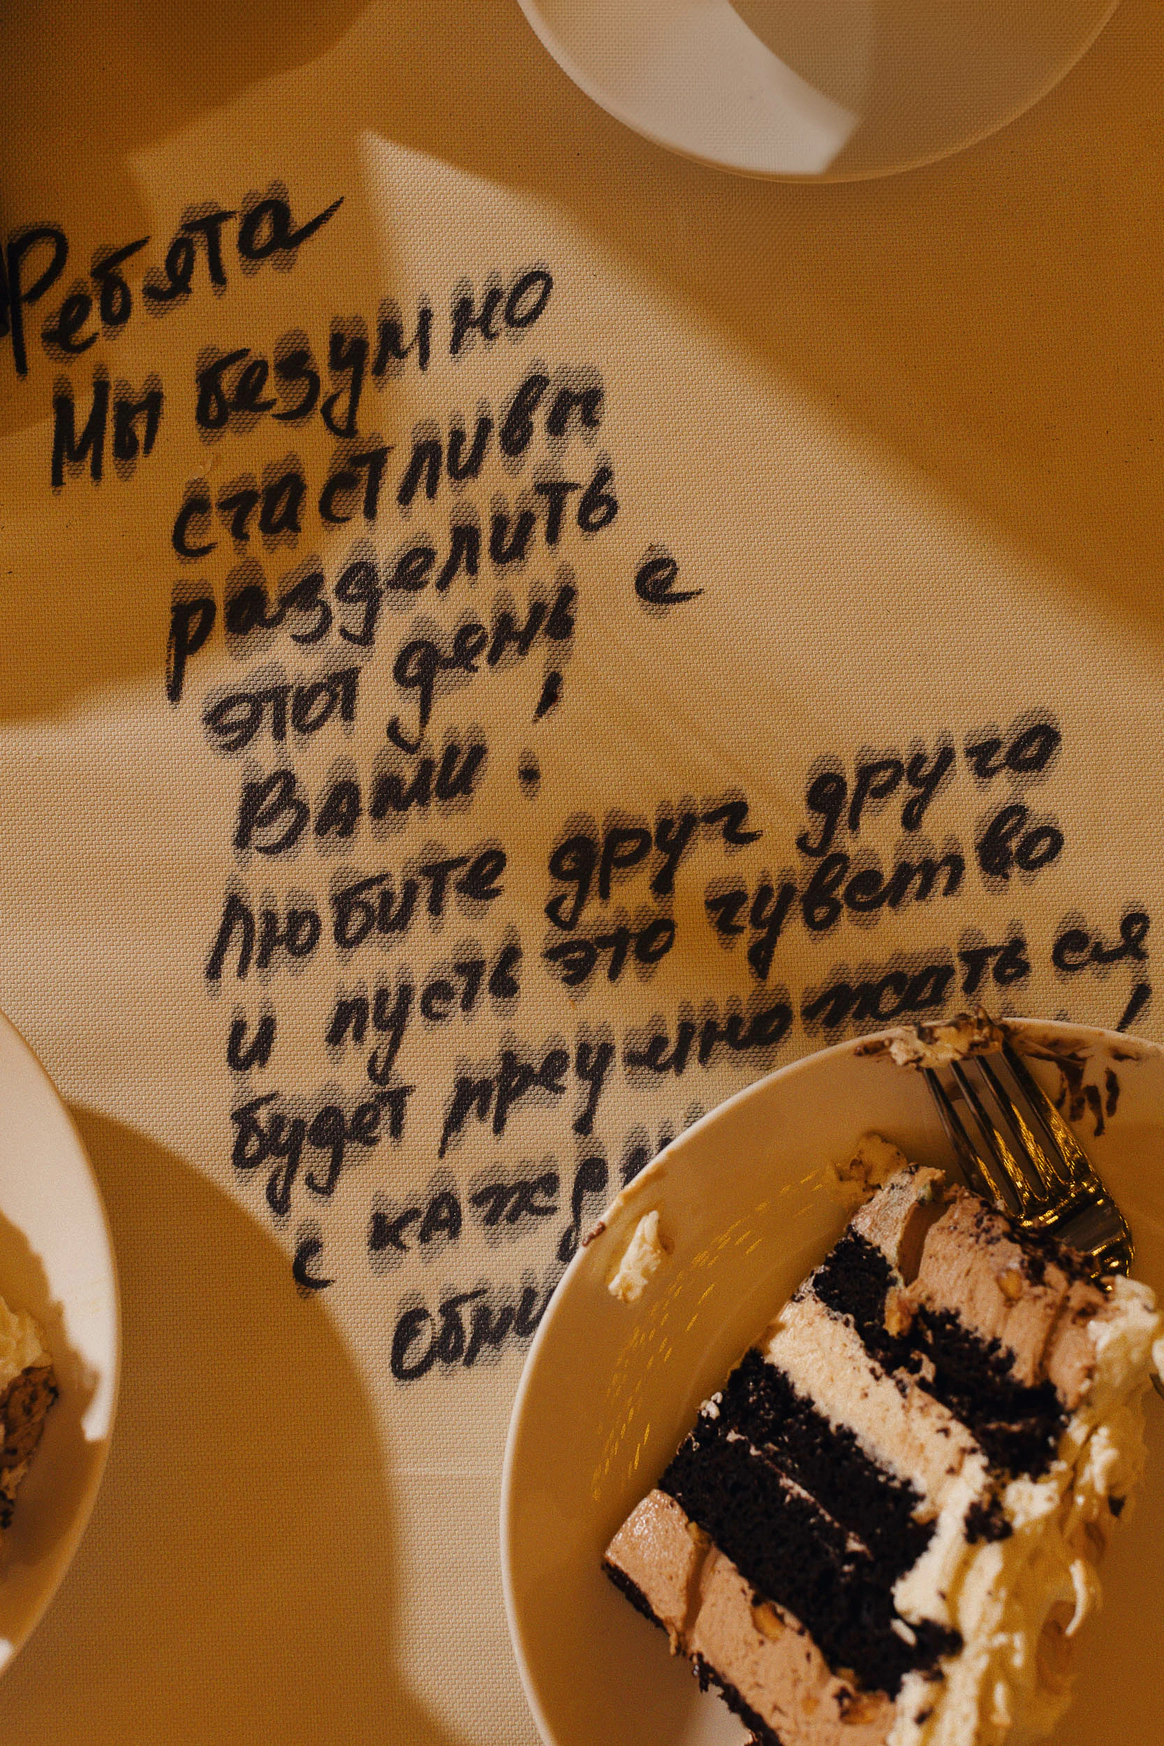 Ребята
Мы безумно
счастливы
разделить
этот день с
Вами!
Любите друг друга
и пусть это чувство
будет преумножаться
с